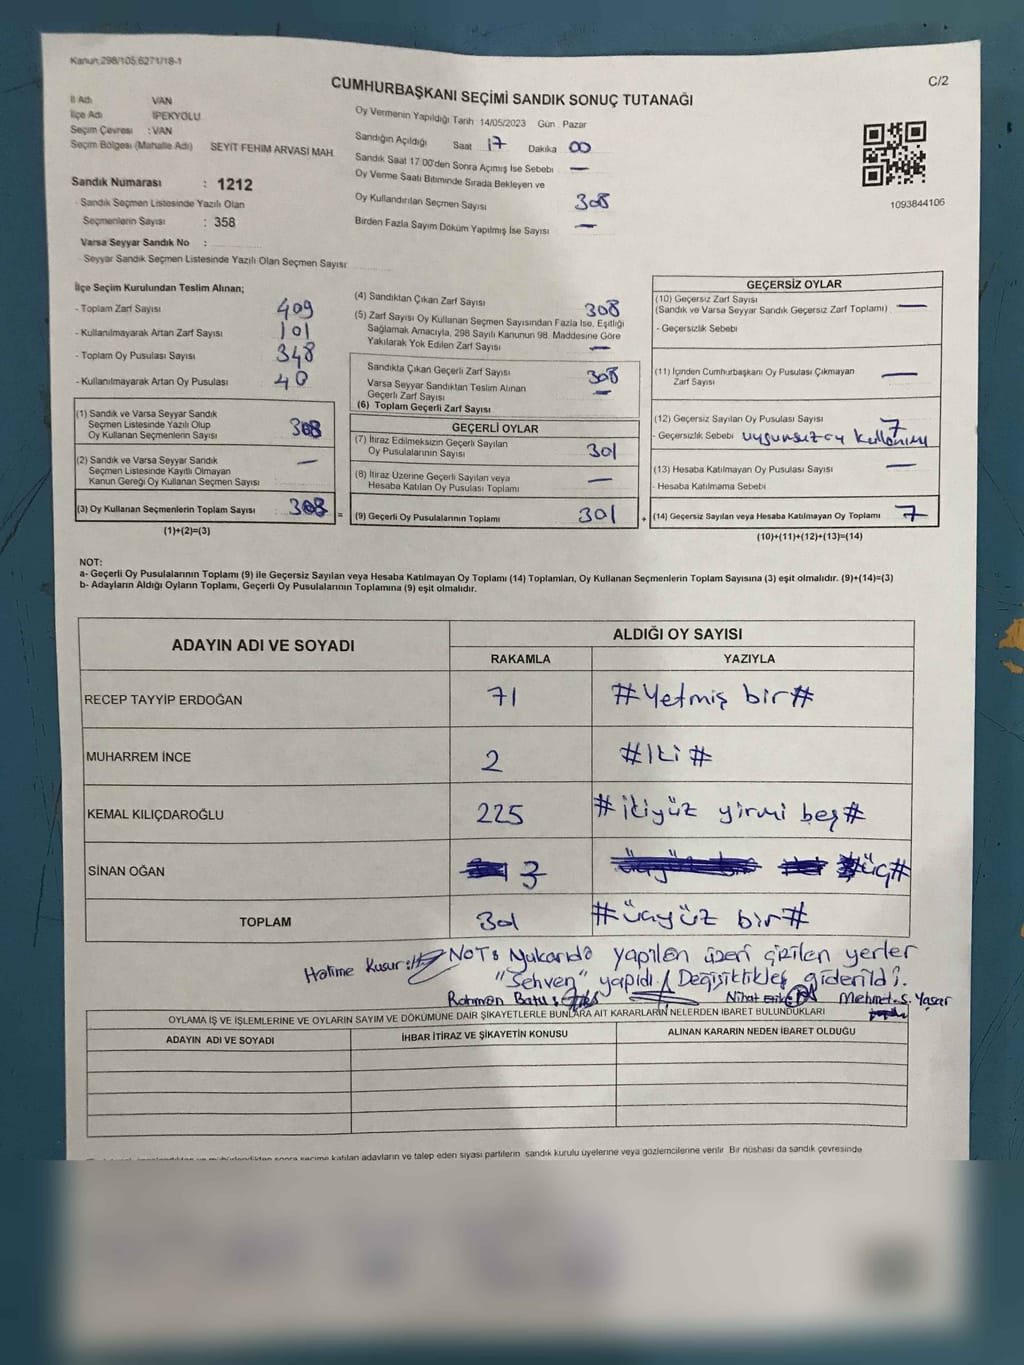 Kanun:298/105,6271/18-1
C/2
CUMHURBAŞKANI SEÇİMİ SANDIK SONUÇ TUTANAĞI
İl Adı VAN
İlçe Adı İPEKYOLU
Seçim Çevresi : VAN
Seçim Bölgesi (Mahalle Adı) SEYİT FEHİM ARVASİ MAH.
Sandık Numarası : 1212
- Sandık Seçmen Listesinde Yazılı Olan
Seçmenlerin Sayısı : 358
Varsa Seyyar Sandık No :
- Seyyar Sandık Seçmen Listesinde Yazılı Olan Seçmen Sayısı:
Oy Vermenin Yapıldığı Tarih 14/05/2023 Gün Pazar
Sandığın Açıldığı Saat 17 Dakika 00
Sandık Saat 17:00'den Sonra Açılmış İse Sebebi —
Oy Verme Saati Bitiminde Sırada Bekleyen ve
Oy Kullandırılan Seçmen Sayısı 308
Birden Fazla Sayım Döküm Yapılmış İse Sayısı —
1093844106
İlçe Seçim Kurulundan Teslim Alınan;
- Toplam Zarf Sayısı 409
- Kullanılmayarak Artan Zarf Sayısı 101
- Toplam Oy Pusulası Sayısı 348
- Kullanılmayarak Artan Oy Pusulası 40
(1) Sandık ve Varsa Seyyar Sandık
Seçmen Listesinde Yazılı Olup
Oy Kullanan Seçmenlerin Sayısı 308
(2) Sandık ve Varsa Seyyar Sandık
Seçmen Listesinde Kayıtlı Olmayan
Kanun Gereği Oy Kullanan Seçmen Sayısı —
(3) Oy Kullanan Seçmenlerin Toplam Sayısı 308 =
(1)+(2)=(3)
(4) Sandıktan Çıkan Zarf Sayısı 308
(5) Zarf Sayısı Oy Kullanan Seçmen Sayısından Fazla İse, Eşitliği
Sağlamak Amacıyla, 298 Sayılı Kanunun 98. Maddesine Göre
Yakılarak Yok Edilen Zarf Sayısı —
Sandıkta Çıkan Geçerli Zarf Sayısı 308
Varsa Seyyar Sandıktan Teslim Alınan
Geçerli Zarf Sayısı —
(6) Toplam Geçerli Zarf Sayısı
GEÇERLİ OYLAR
(7) İtiraz Edilmeksizin Geçerli Sayılan
Oy Pusulalarının Sayısı 301
(8) İtiraz Üzerine Geçerli Sayılan veya
Hesaba Katılan Oy Pusulası Toplamı —
(9) Geçerli Oy Pusulalarının Toplamı 301 +
GEÇERSİZ OYLAR
(10) Geçersiz Zarf Sayısı
(Sandık ve Varsa Seyyar Sandık Geçersiz Zarf Toplamı) —
- Geçersizlik Sebebi
(11) İçinden Cumhurbaşkanı Oy Pusulası Çıkmayan
Zarf Sayısı —
(12) Geçersiz Sayılan Oy Pusulası Sayısı 7
- Geçersizlik Sebebi uygunsuz oy kullanımı
(13) Hesaba Katılmayan Oy Pusulası Sayısı —
- Hesaba Katılmama Sebebi
(14) Geçersiz Sayılan veya Hesaba Katılmayan Oy Toplamı 7
(10)+(11)+(12)+(13)=(14)
NOT:
a- Geçerli Oy Pusulalarının Toplamı (9) ile Geçersiz Sayılan veya Hesaba Katılmayan Oy Toplamı (14) Toplamları, Oy Kullanan Seçmenlerin Toplam Sayısına (3) eşit olmalıdır. (9)+(14)=(3)
b- Adayların Aldığı Oyların Toplamı, Geçerli Oy Pusulalarının Toplamına (9) eşit olmalıdır.
ADAYIN ADI VE SOYADI
ALDIĞI OY SAYISI
RAKAMLA YAZIYLA
RECEP TAYYİP ERDOĞAN 71 #Yetmiş bir#
MUHARREM İNCE 2 #İki#
KEMAL KILIÇDAROĞLU 225 #ikiyüz yirmi beş#
SİNAN OĞAN 3 #üç#
TOPLAM 301 #üçyüz bir#
NOT: Yukarıda yapılan üzeri çizilen yerler
"Sehven" yapıldı. Değişiklikler giderildi.
Halime Kusur
Rahman Batu Nihat Mehmet. S. Yaşar
OYLAMA İŞ VE İŞLEMLERİNE VE OYLARIN SAYIM VE DÖKÜMÜNE DAİR ŞİKAYETLERLE BUNLARA AİT KARARLARIN NELERDEN İBARET BULUNDUKLARI
ADAYIN ADI VE SOYADI İHBAR İTİRAZ VE ŞİKAYETİN KONUSU ALINAN KARARIN NEDEN İBARET OLDUĞU
sonra seçime katılan adayların ve talep eden siyasi partilerin sandık kurulu üyelerine veya gözlemcilerine verilir. Bir nüshası da sandık çevresinde